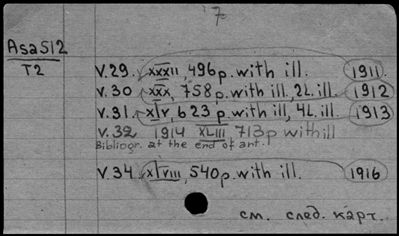 7
Asa512
T2
v.29. xxxii, 496p. with ill. 1911.
v.30 xxx, 758p. with ill., 2L. ill. 1912
v.31. xlv, 623 p. with ill., 4L. ill. 1913
v.32 1914 XLIII, 713p with ill
Bibliogr. at the end of art.
v.34 xlviii, 540p. with ill. 1916
см. след. карт.